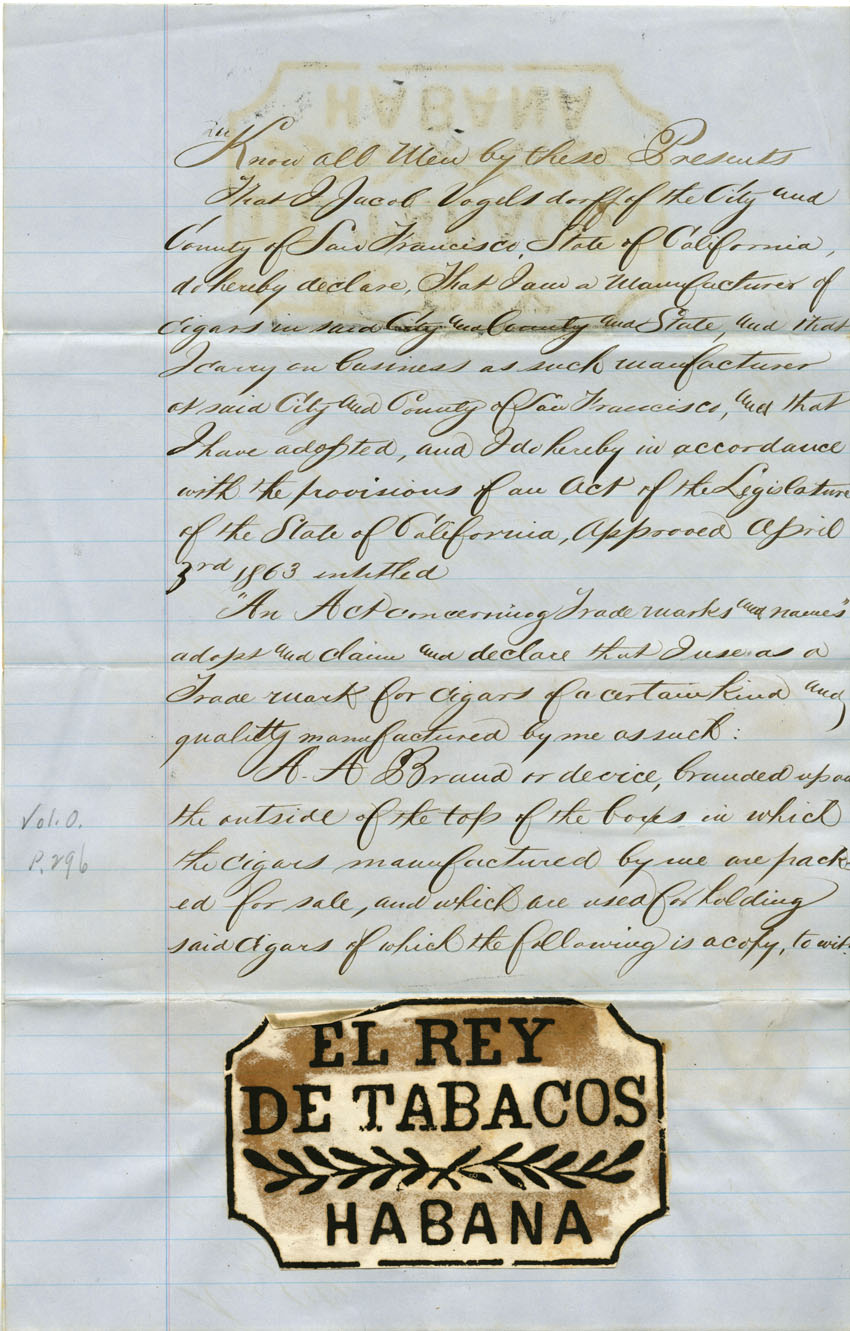 Know all Men by these Presents
That I Jacob Vogelsdorff of the City and
County of San Francisco, State of California,
do hereby declare, That I am a Manufacturer of
cigars in said City and County and State, and that
I carry on business as such manufacturer
at said City and County of San Francisco, and that
I have adopted, and I do hereby in accordance
with the provisions of an Act of the Legislature
of the State of California, Approved April
3rd 1863 entitled
"An Act concerning Trade marks and names"
adopt and claim and declare that I use as a
Trade mark for cigars of a certain kind and
quality manufactured by me as such:
A. A Brand or device, branded upon
the outside of the top of the boxes in which
the cigars manufactured by me are pack-
ed for sale, and which are used for holding
said cigars of which the following is a copy, to wit:
Vol. O.
P. 296
EL REY
DE TABACOS
HABANA